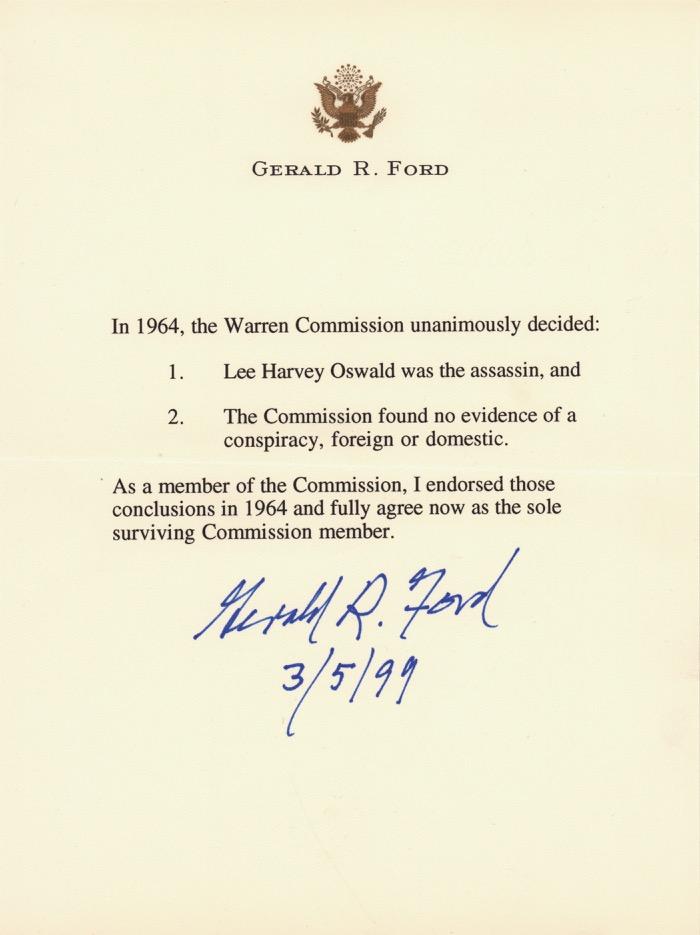 GERALD R. FORD
In 1964, the Warren Commission unanimously decided:
1. Lee Harvey Oswald was the assassin, and
2. The Commission found no evidence of a
conspiracy, foreign or domestic.
As a member of the Commission, I endorsed those
conclusions in 1964 and fully agree now as the sole
surviving Commission member.
Gerald R. Ford
3/5/99